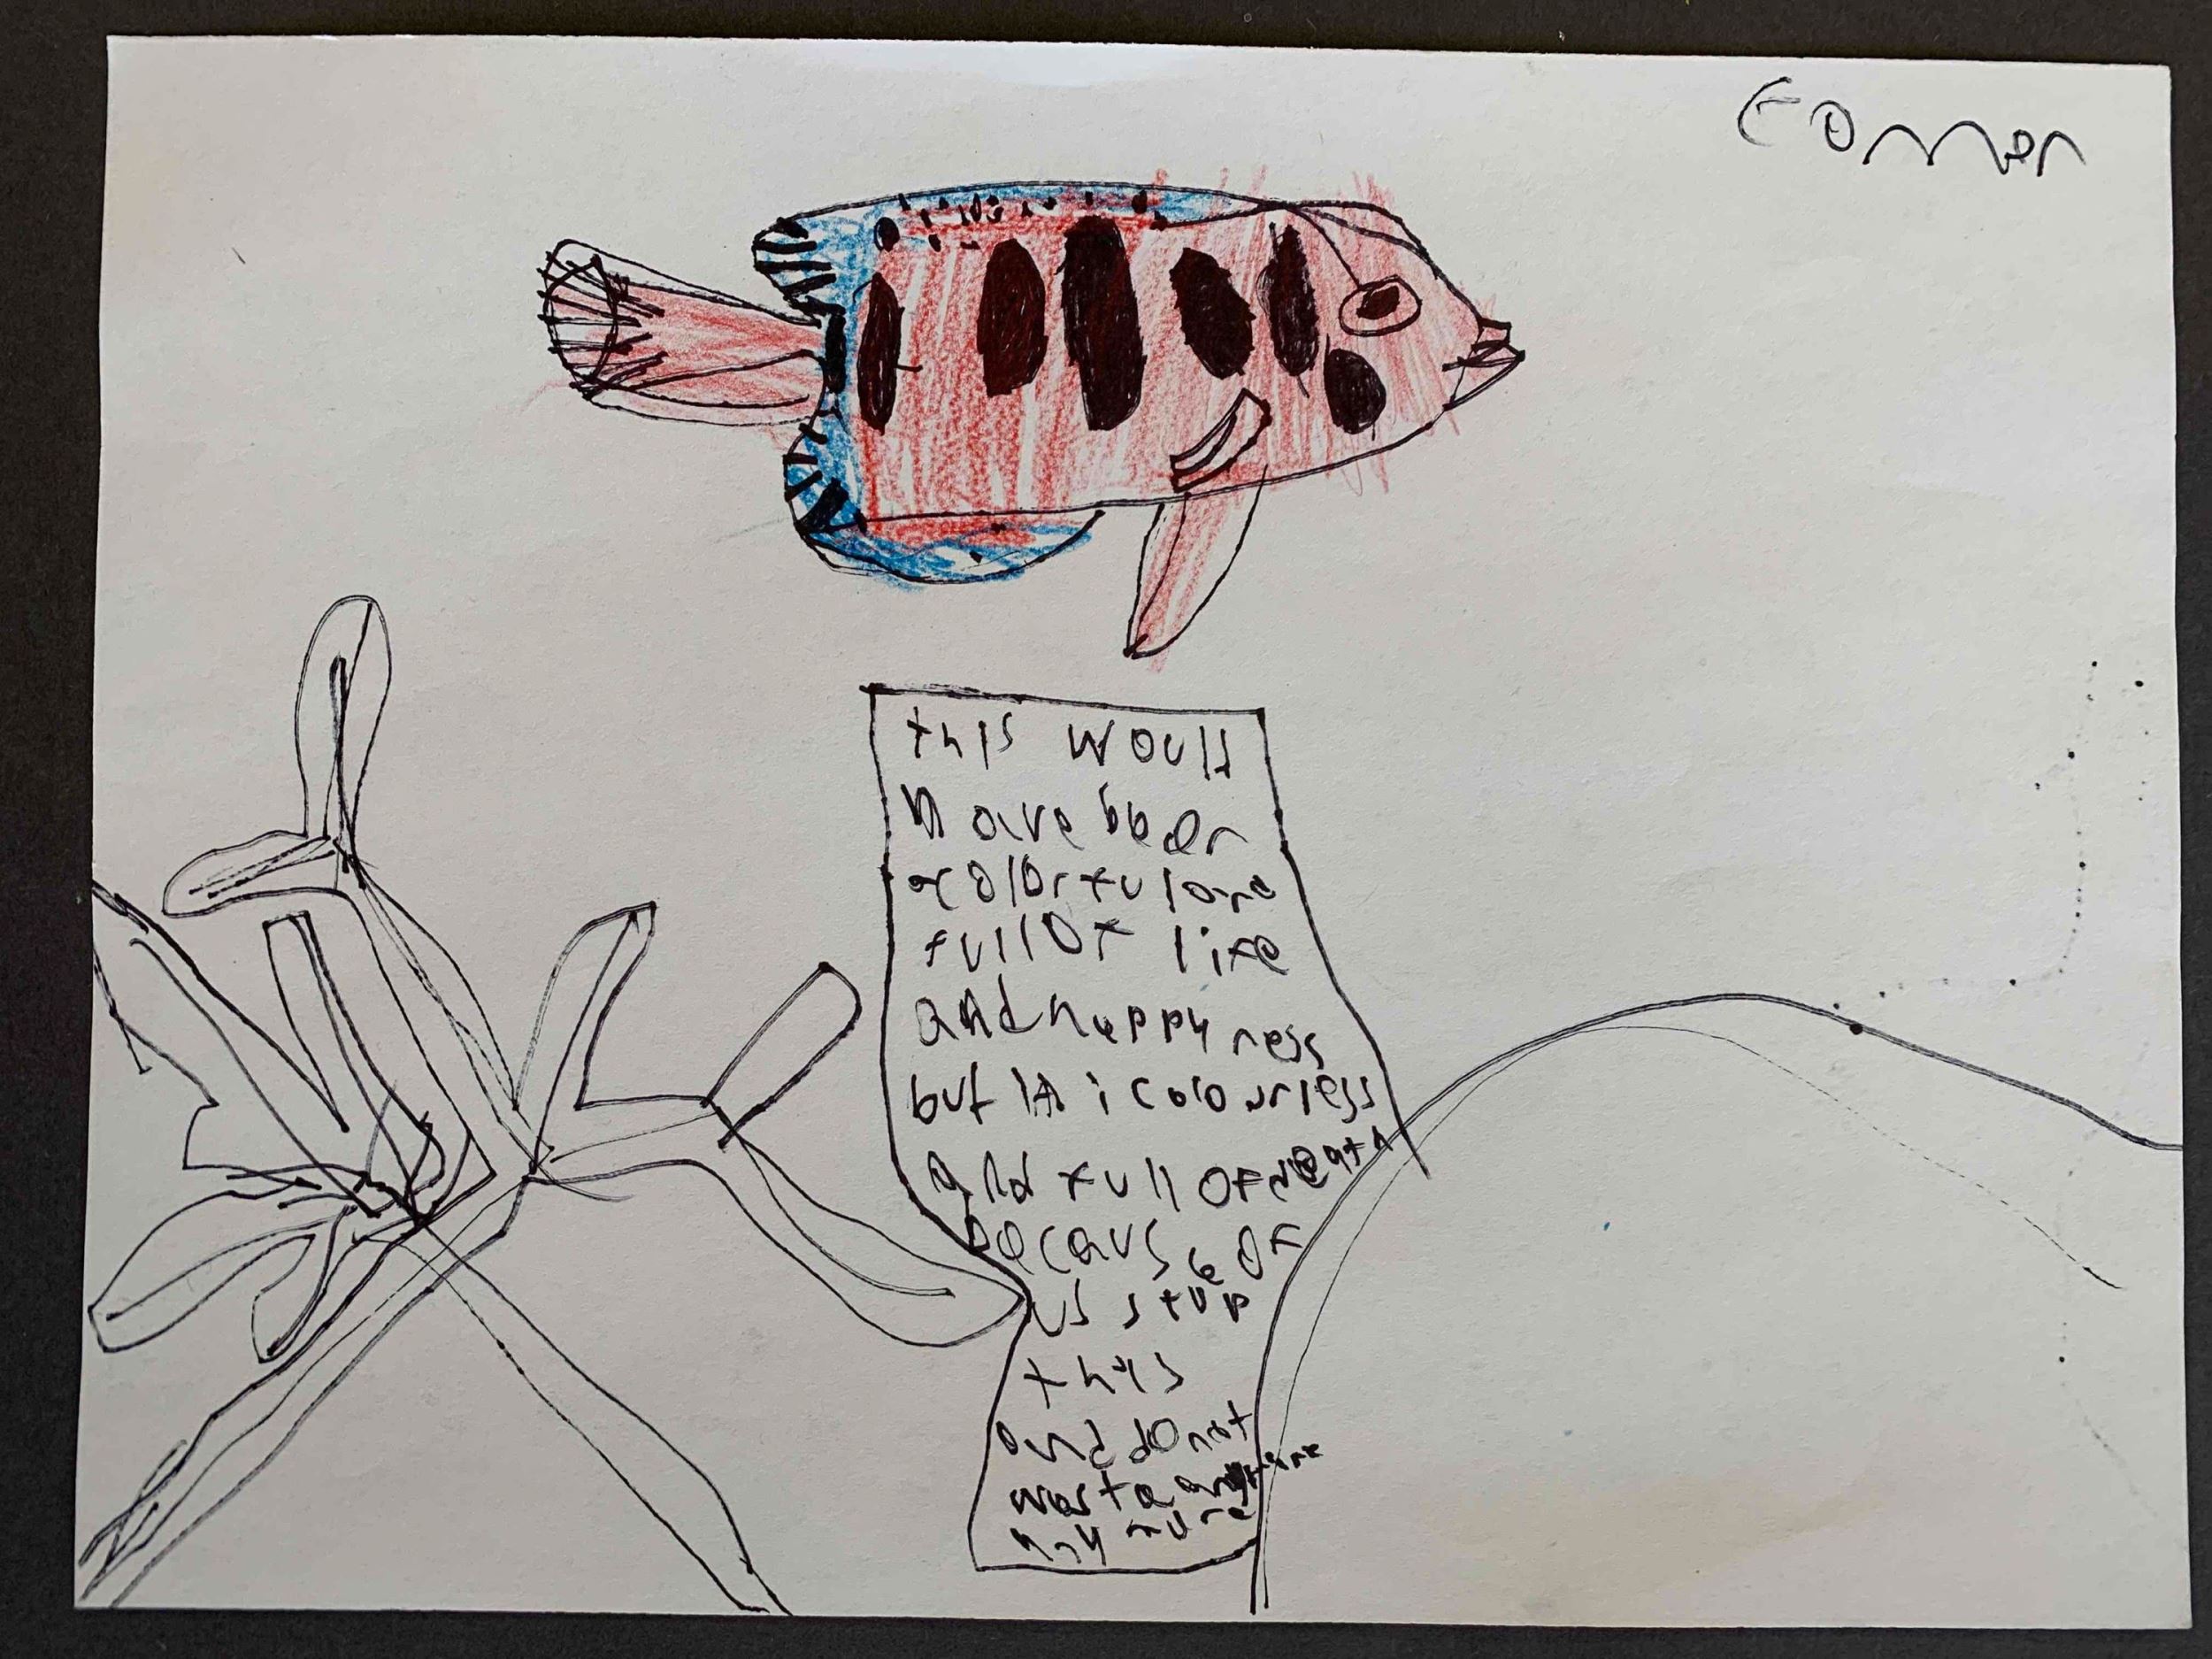 Eomer
this would
have been
colorful and
full of life
and happyness
but is colourless
and full of death
because of
us stop
this
and do not
waste